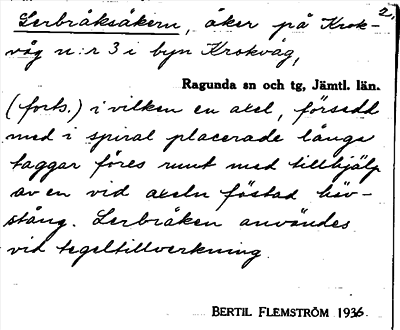 2.
Lerbråksåkern, åker på Krok-
våg n:r 3 i byn Krokvåg,
Ragunda sn och tg, Jämtl. län.
(forts.) i vilken en axel, försedd
med i spiral placerade långa
taggar föres runt med tillhjälp
av en vid axeln fästad häv-
stång. Lerbråken användes
vid tegeltillverkning.
BERTIL FLEMSTRÖM 1936.